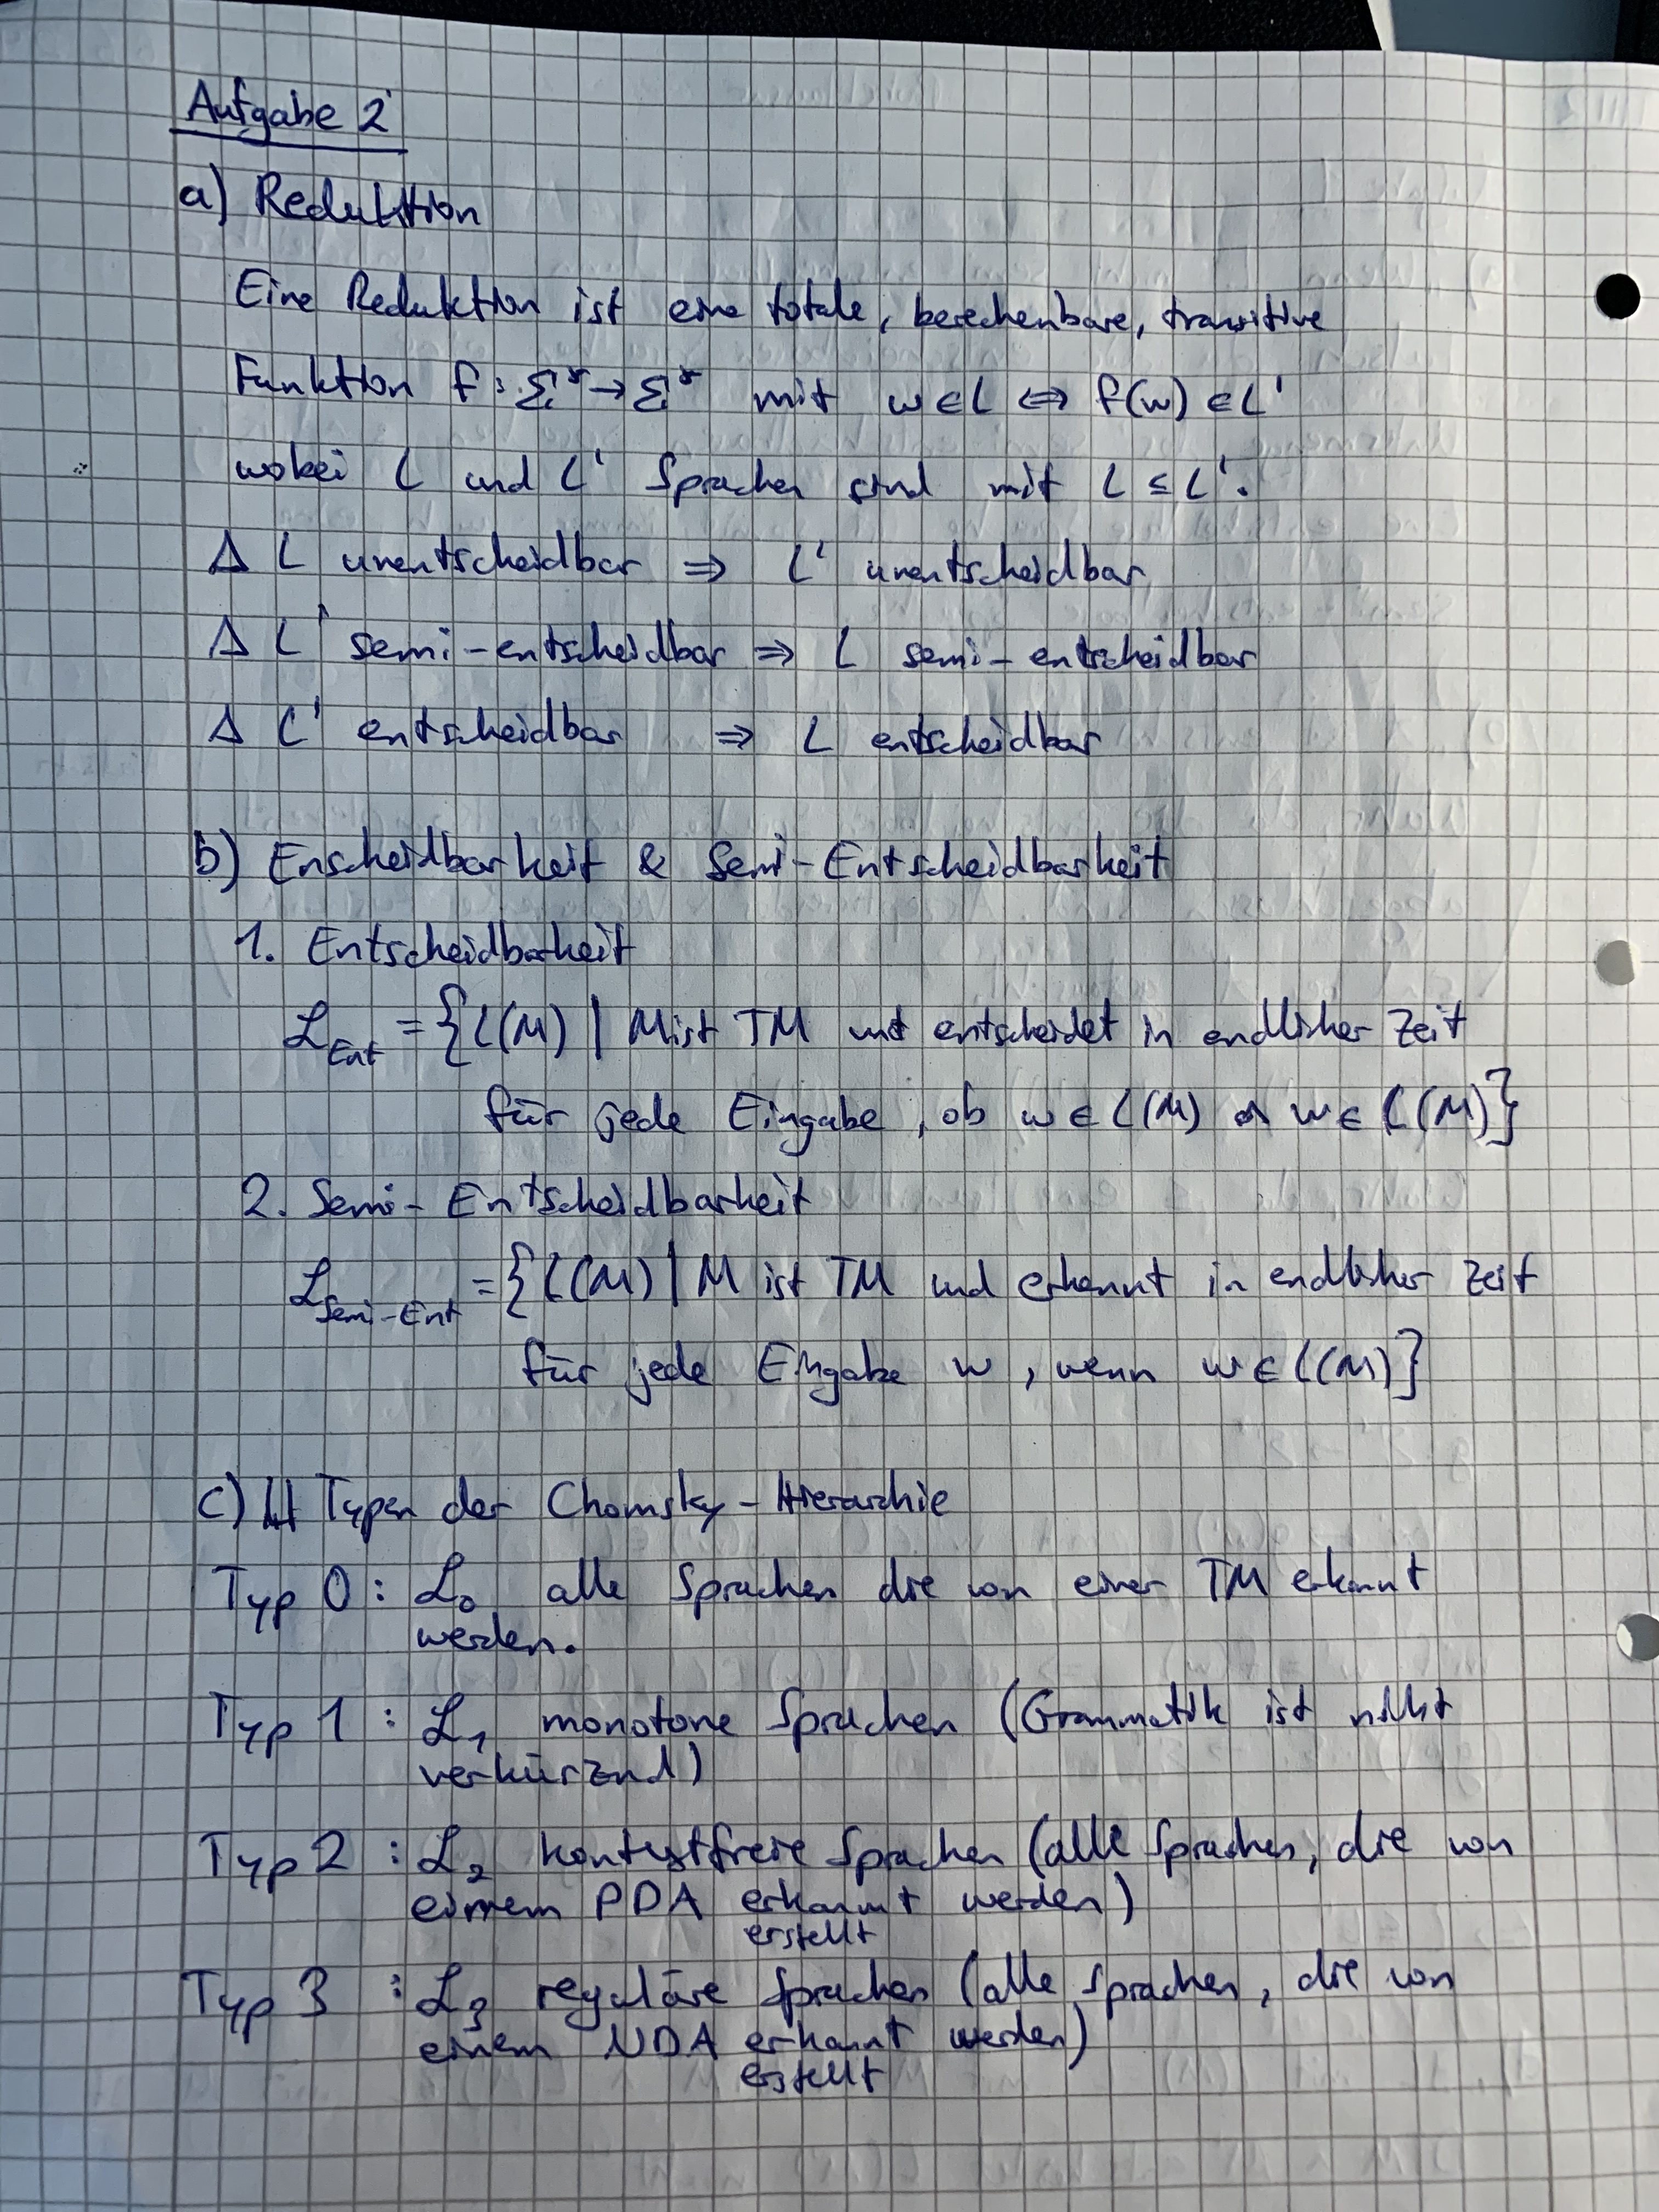 Aufgabe 2
a) Reduktion
Eine Reduktion ist eine totale, berechenbare, transitive
Funktion f: Σ* → Σ* mit w ∈ L ⇔ f(w) ∈ L'
wobei L und L' Sprachen sind mit L ≤ L'.
Δ L unentscheidbar ⇒ L' unentscheidbar
Δ L' semi-entscheidbar ⇒ L semi-entscheidbar
Δ L' entscheidbar ⇒ L entscheidbar
b) Enscheidbarkeit & Semi-Entscheidbarkeit
1. Entscheidbarkeit
ℒEnt = {L(M) | M ist TM und entscheidet in endlicher Zeit
für jede Eingabe, ob w ∈ L(M) w ∈ L(M)}
2. Semi-Entscheidbarkeit
ℒSemi-Ent = {L(M) | M ist TM und erkennt in endlicher Zeit
für jede Eingabe w, wenn w ∈ L(M)}
c) Typen der Chomsky-Hierarchie
Typ 0: ℒ₀ alle Sprachen die von einer TM erkannt
werden.
Typ 1: ℒ₁ monotone Sprachen (Grammatik ist nicht
verkürzend)
Typ 2: ℒ₂ kontextfreie Sprachen (alle Sprachen, die von
einem PDA erkannt werden)
erstellt
Typ 3: ℒ₃ reguläre Sprachen (alle Sprachen, die von
einem NDA erkannt werden)
erstellt